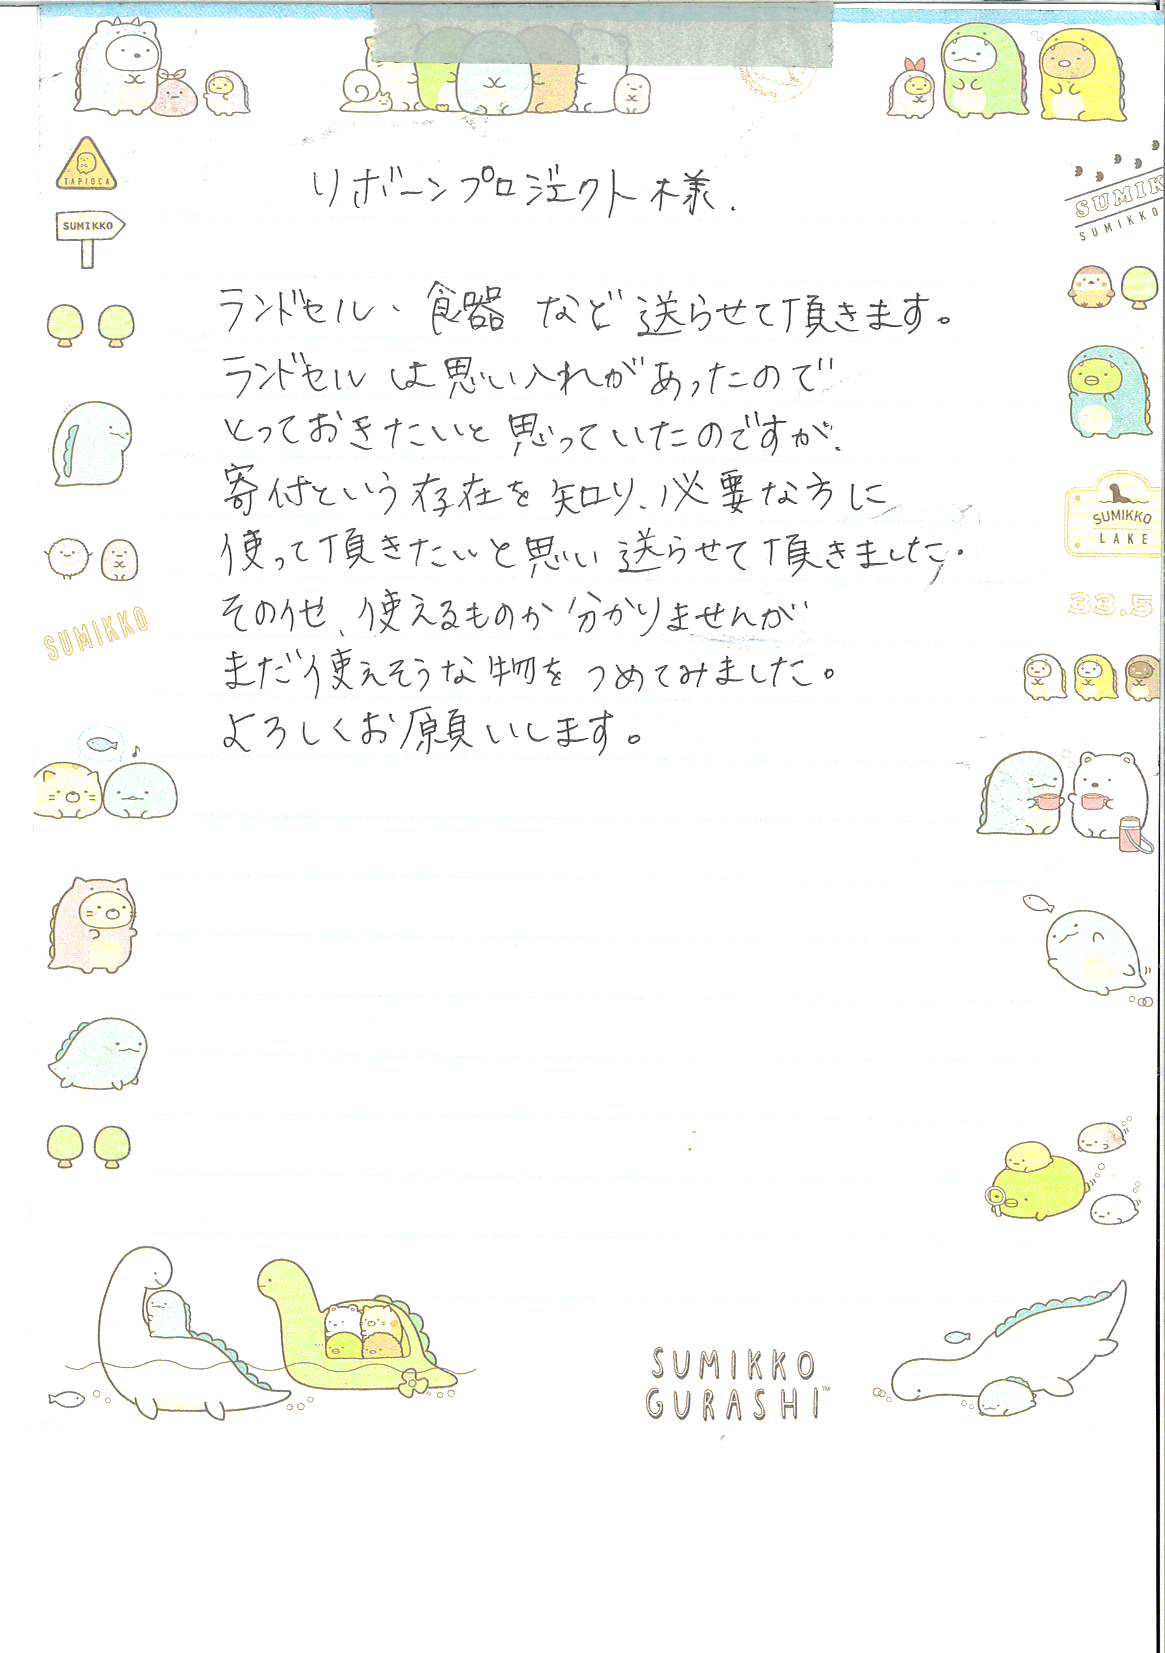 TAPIOCA
SUMIKKO
SUMIK
SUMIKKO
リボーンプロジェクト様.
ランドセル、食器 など 送らせて頂きます。
ランドセル は思い入れがあったので
とっておきたいと思っていたのですが、
寄付という存在を知り、必要な方に
使って頂きたいと思い送らせて頂きました.
その他、使えるものか分かりませんが
まだ使えそうな物をつめてみました。
よろしくお願いします。
SUMIKKO
LAKE
33.5
SUMIKKO
SUMIKKO
GURASHI™